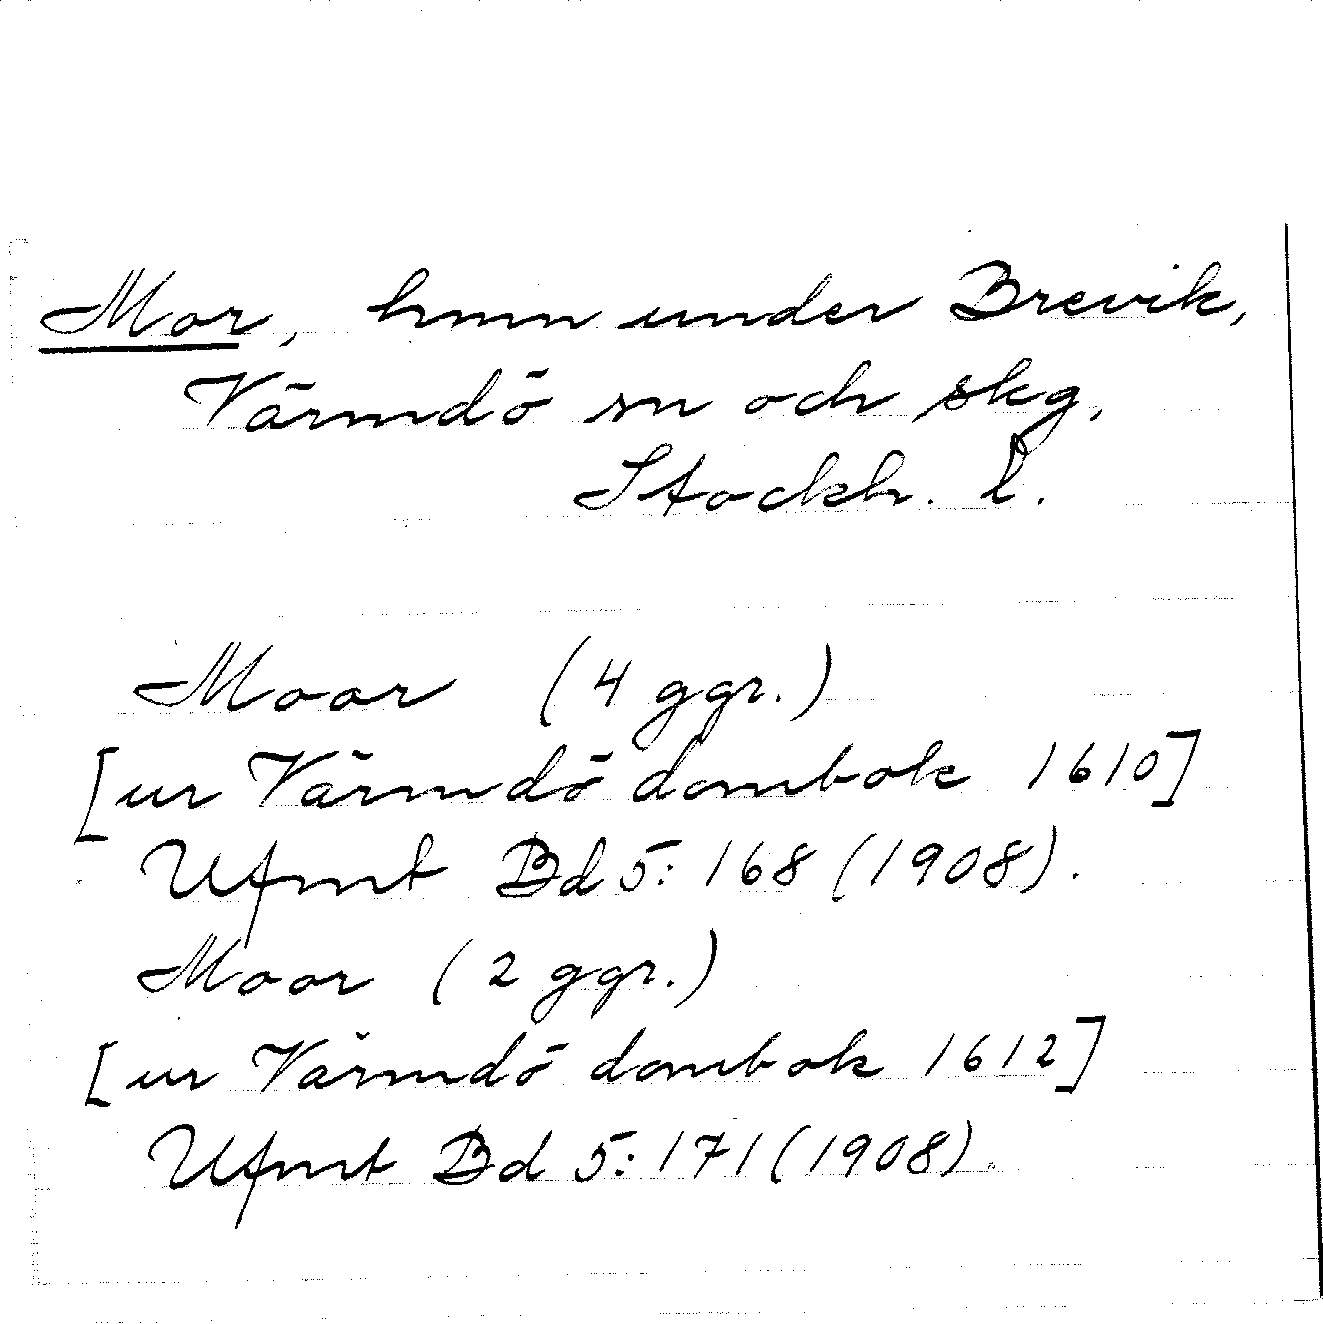 Mor, hmn under Brevik,
Värmdö sn och skg,
Stockh. l.
Moor (4 ggr.)
[ur Värmdö dombok 1610]
Ufmt Bd 5: 168 (1908).
Moor (2 ggr.)
[ur Värmdö dombok 1612]
Ufmt Bd 5: 171 (1908).